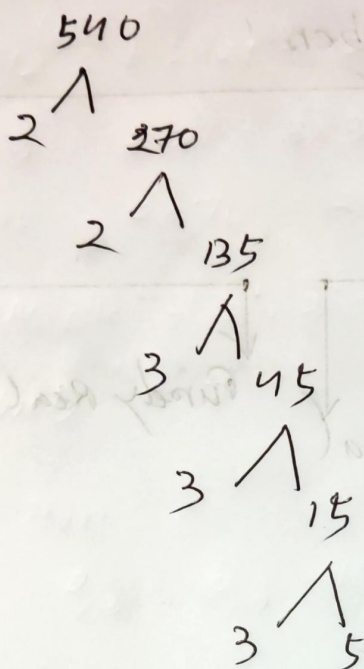 540
2 270
2 135
3 45
3 15
3 5